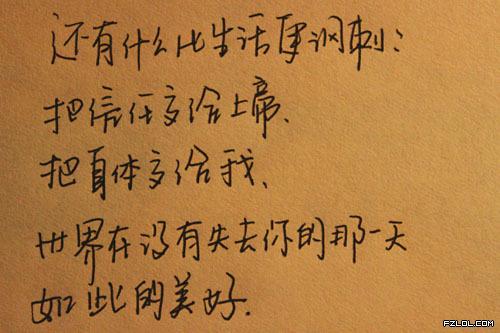 还有什么比生活更讽刺:
把信任交给上帝、
把身体交给我、
世界在没有失去你的那一天
如此的美好.
FZLOL.COM